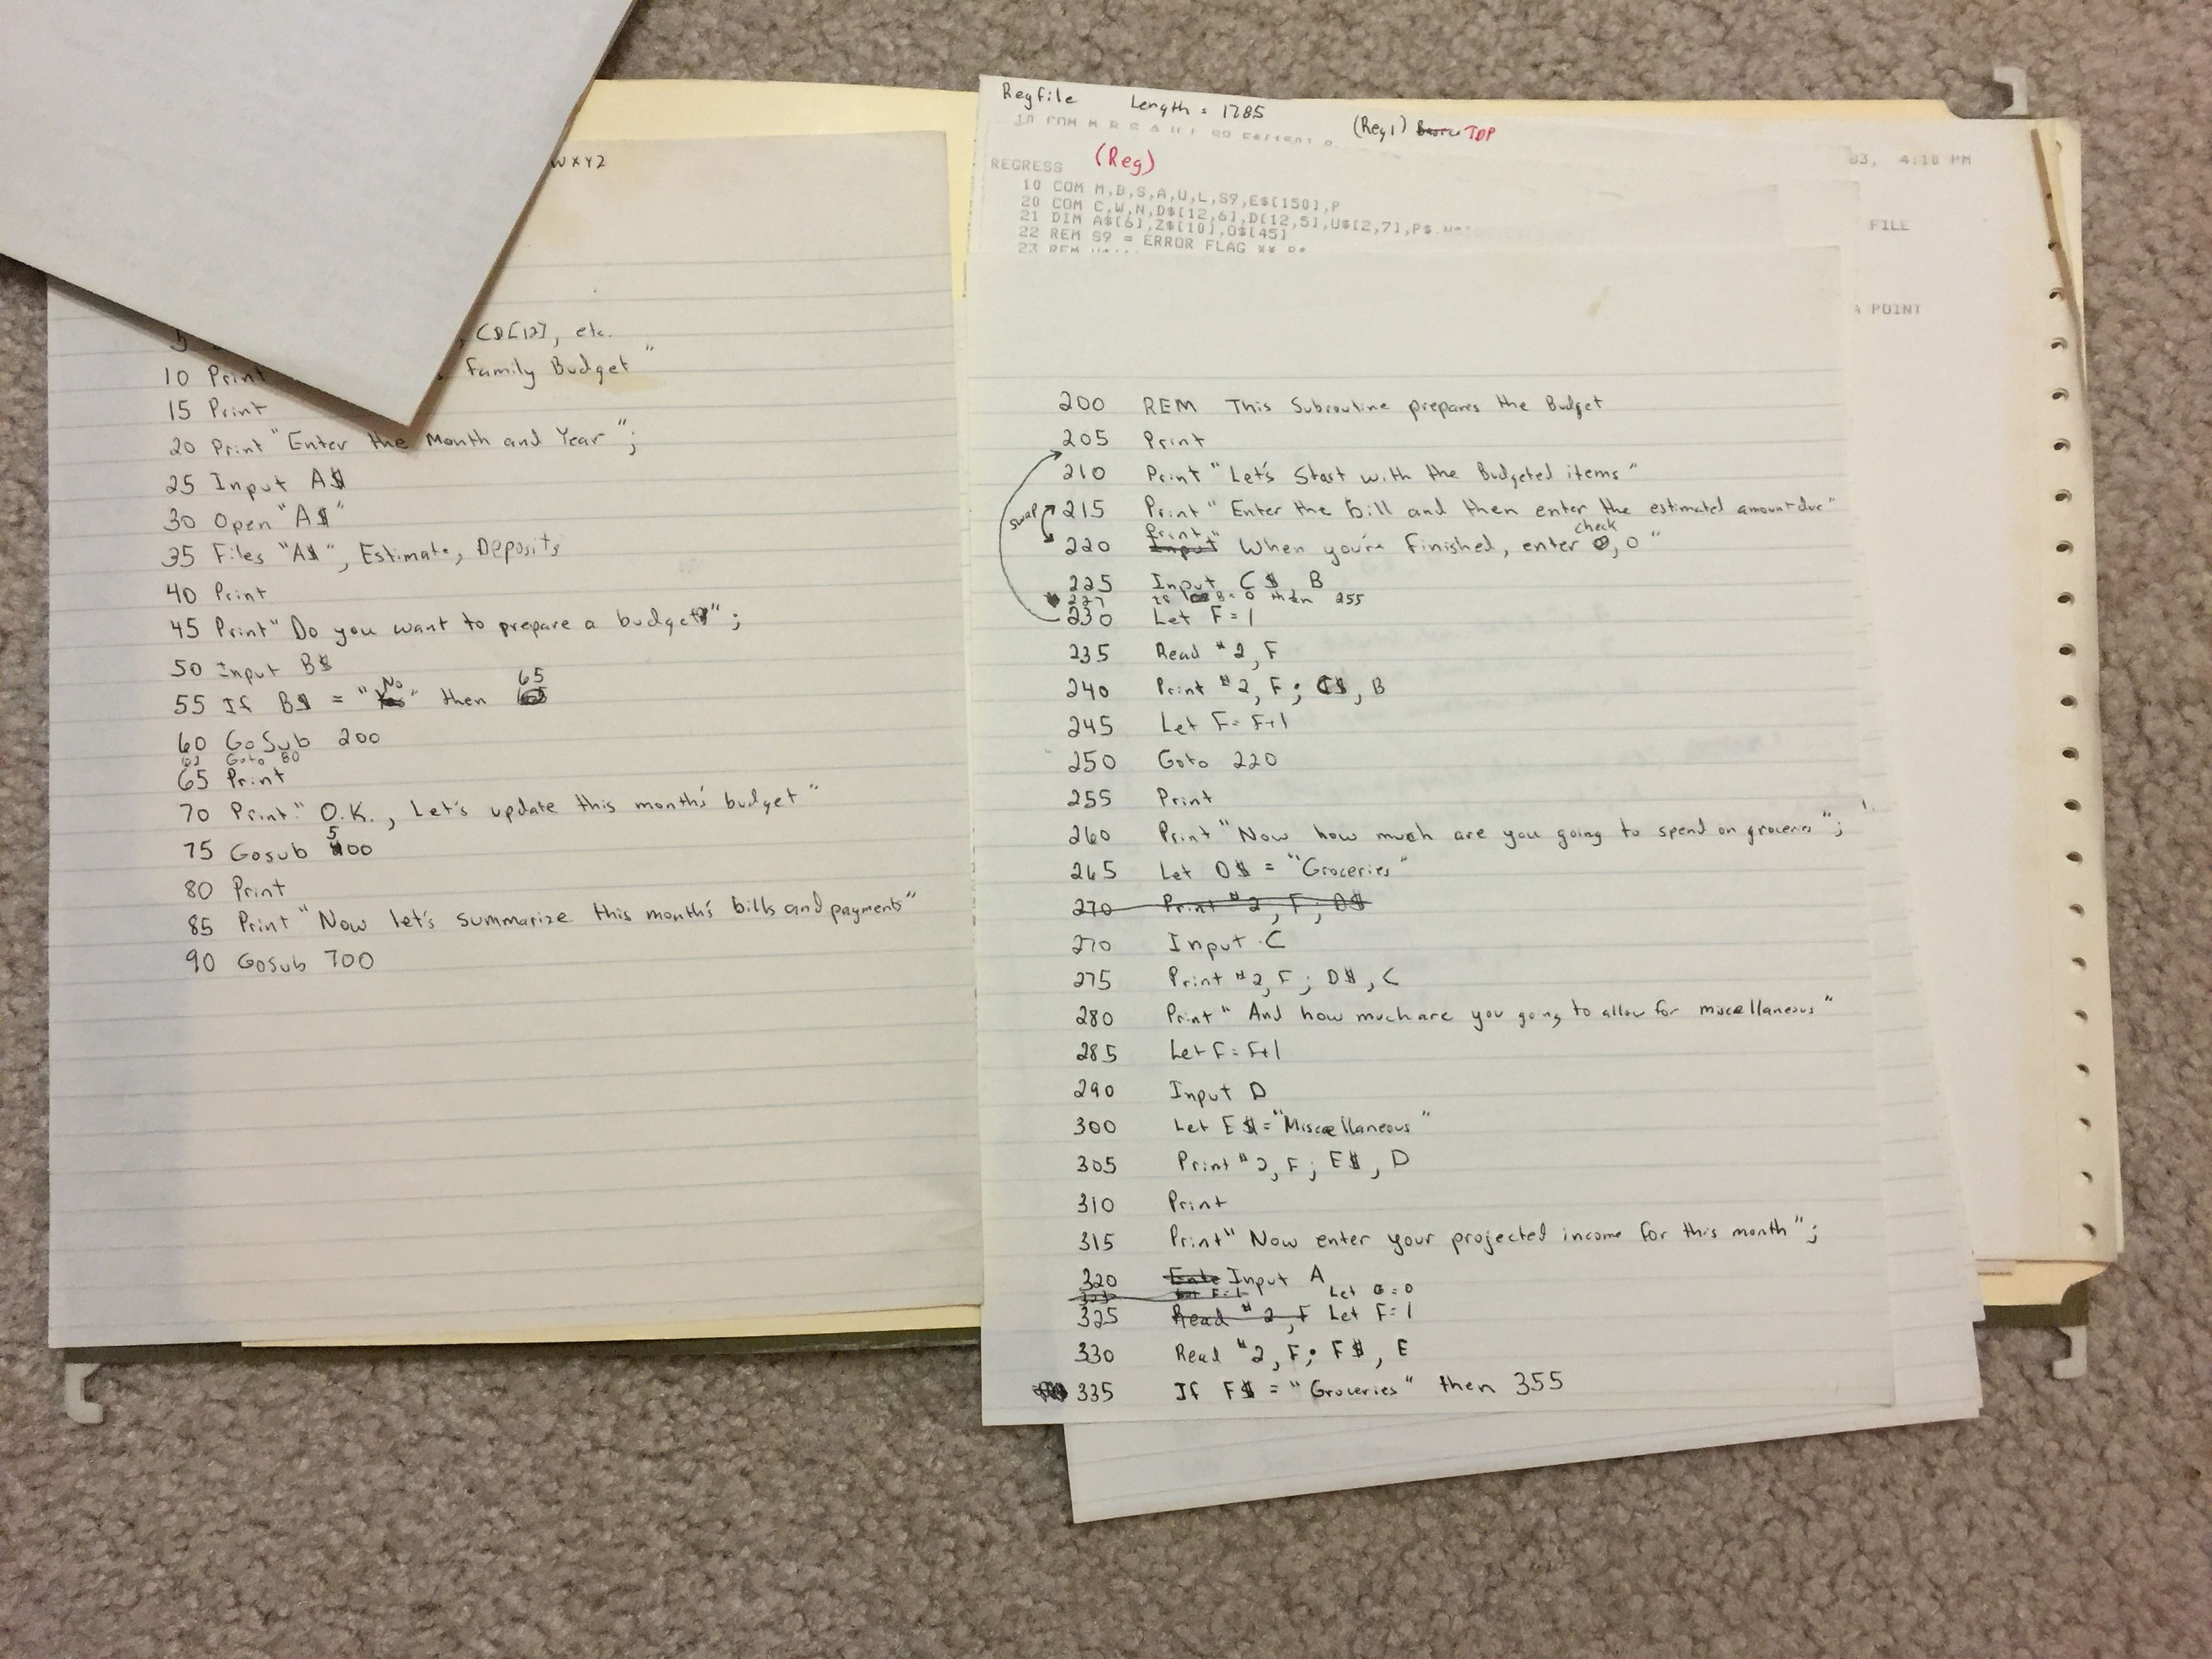 WXYZ
, C$[12], etc.
10 Print Family Budget "
15 Print
20 Print "Enter the Month and Year";
25 Input A$
30 Open "A$"
35 Files "A$", Estimate, Deposits
40 Print
45 Print "Do you want to prepare a budget";
50 Input B$
55 If B$ = "No" then 65
60 GoSub 200
62 Goto 80
65 Print
70 Print "O.K., Let's update this month's budget"
75 Gosub 500
80 Print
85 Print "Now let's summarize this month's bills and payments"
90 GoSub 700
Regfile Length = 1785
(Reg1) TDP
REGRESS (Reg)
10 COM M,B,S,A,U,L,S9,E$[150],P
20 COM C,W,N,D$[12,6],D[12,5],U$[2,7],P$
21 DIM A$[6],Z$[10],O$[45]
22 REM S9 = ERROR FLAG **
23 REM
83, 4:10 PM
FILE
A POINT
200 REM This Subroutine prepares the Budget
205 Print
210 Print "Let's Start with the Budgeted items"
swap 215 Print "Enter the bill and then enter the estimated amount due"
220 Print " When you're finished, enter check, 0"
225 Input C$, B
227 If B=0 then 255
230 Let F=1
235 Read #2, F
240 Print #2, F; C$, B
245 Let F=F+1
250 Goto 220
255 Print
260 Print "Now how much are you going to spend on groceries";
265 Let D$ = "Groceries"
270 Print #2, F; D$
270 Input C
275 Print #2, F; D$, C
280 Print "And how much are you going to allow for miscellaneous"
285 Let F=F+1
290 Input D
300 Let E$="Miscellaneous"
305 Print #2, F; E$, D
310 Print
315 Print "Now enter your projected income for this month";
320 Ente Input A
Let G=0
325 Read #2, F Let F=1
330 Read #2, F; F$, E
335 If F$ = "Groceries" then 355